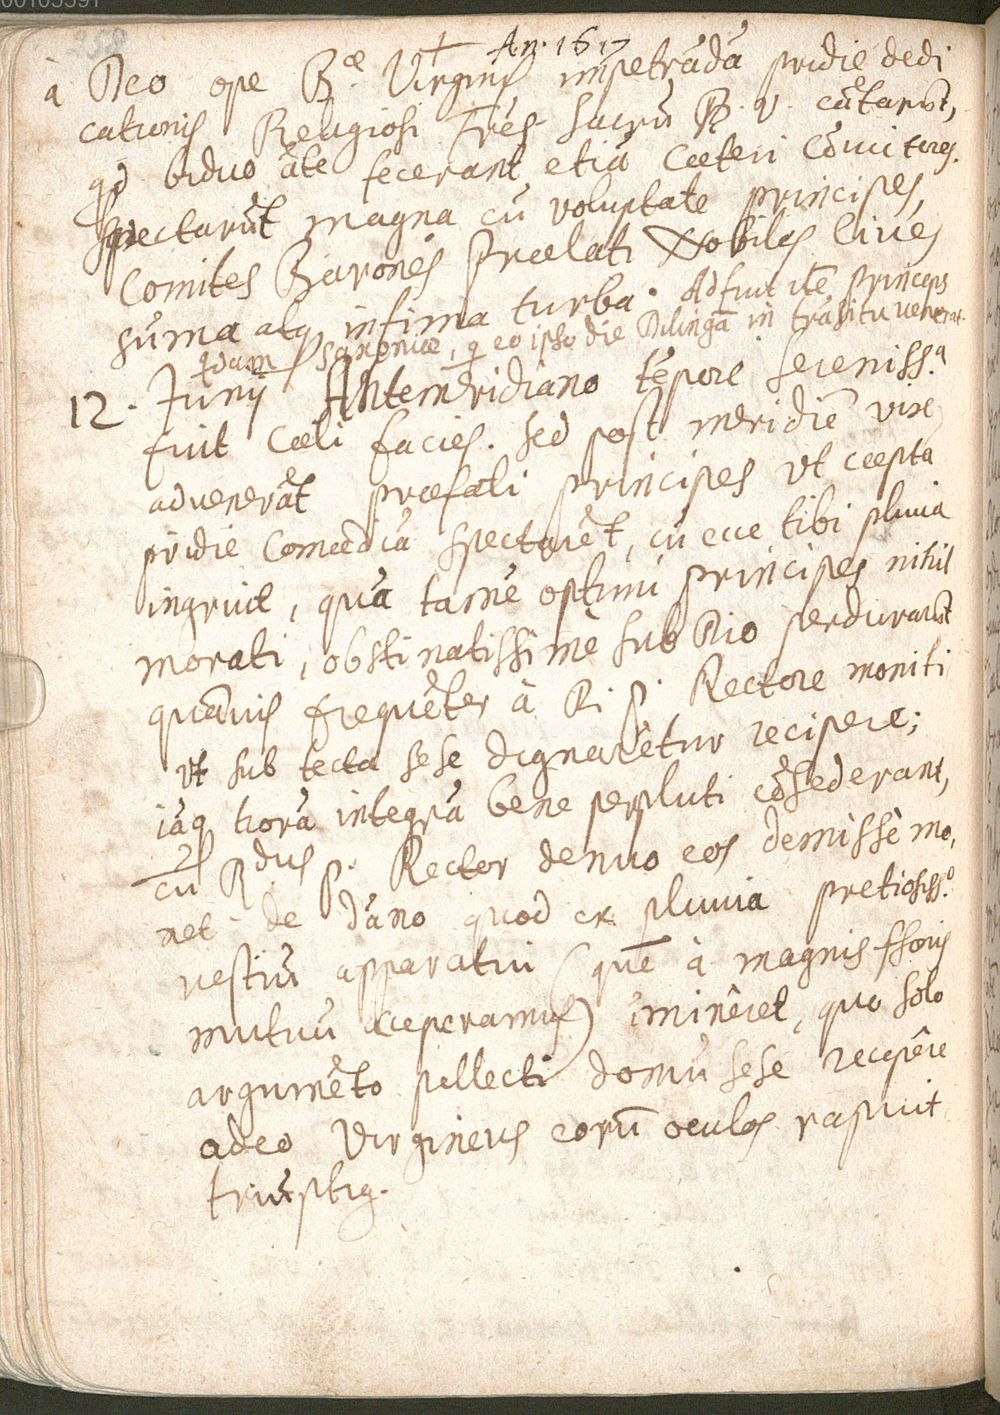 00103391
258
An. 1617
à Deo ope B.æ Virginis impetrãdã pridie dedi
cationis Religiosi frẽs sacrũ B. V. cãtarũt,
qd biduo ãte fecerant etiã cæteri Cõuictores.
Spectarũt magna cũ voluptate principes,
Comites Barones Prælati Nobiles Ciues
sũma atq infima turba. Adfuit itẽ princeps
qdam Saxoniæ, q eo ipso die Dilingã in trãsitu venerat.
12. Junij Antemeridiano tẽpore sereniss.a
fuit cœli facies. sed post meridiẽ vix
aduenerãt præfati principes vt cœpta
pridie Comœdiã spectarẽt, cũ ecce tibi pluuia
ingruit, quã tamẽ optimi principes nihil
morati, obstinatissimè sub Dio perdurarũt
quãuis frequẽter à R. P. Rectore moniti
vt sub tecta sese dignarẽtur recipere;
iãq horã integrã bene perpluti cõsederant,
cũ Rdus P. Rector denuo eos demissè mo,
net de dãno quod ex pluuia pretiosiss.o
vestiũ apparatui (quẽ à magnis
mutuũ acceperamus) iminẽret, quo solo
argumẽto pellecti domũ sese recepẽre
adeo Virgineus eorũ oculos rapuit
triũphq.